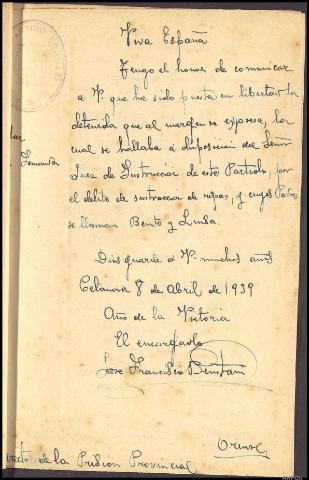 Viva España
Tengo el honor de comunicar
a V. que ha sido puesta en libertad la
detenida que al margen se expresa, la
cual se hallaba a disposición del Señor
Juez de Instrucción de este Partido, por
el delito de sustraccion de ropas, y cuyos Padres
se llaman Benito y Luisa.
Fernandez
Dios guarde á V. muchos años
Celanova 8 de Abril de 1939
Año de la Victoria
El encargado
Jose Francisco
Orense
de la Prision Provincial